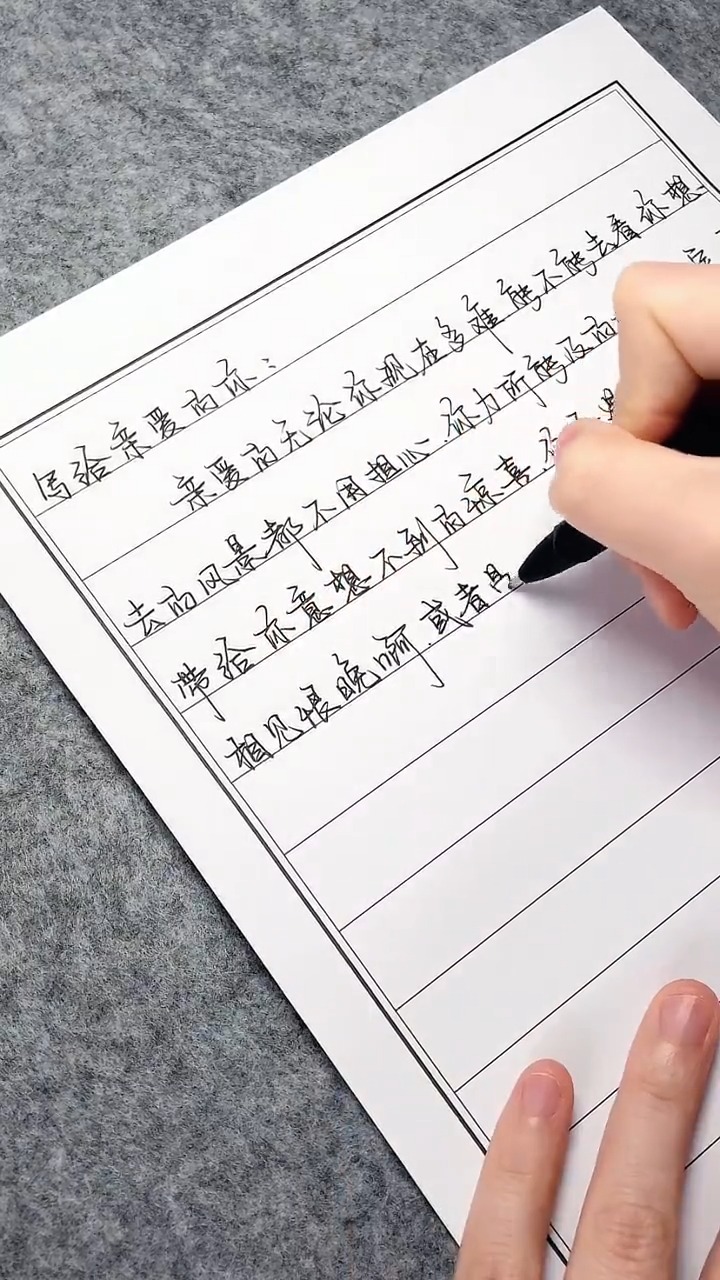 写给亲爱的你：
亲爱的无论你现在多难 能不能去看你想
去的风景都不用担心.你力所能及的 定
带给你意想不到的惊喜.你
相见恨晚啊.或者是